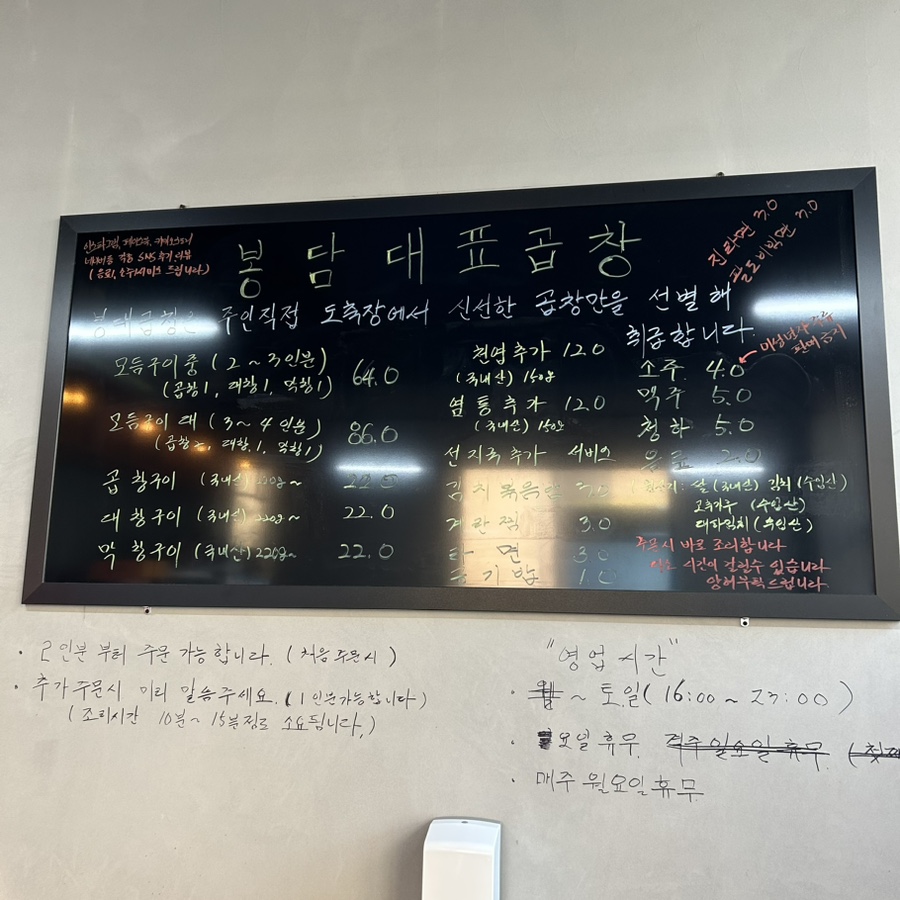 인스타그램, 페이스북, 카카오스토리
네이버등 각종 SNS 후기 사진
(음료, 소주서비스 드립니다)
봉담대표곱창
진라면 3.0
팔도비빔면 3.0
봉대곱창은 주인직접 도축장에서 신선한 곱창만을 선별해
취급합니다.
모듬구이 중 (2~3인분) 64.0
(곱창1, 대창1, 막창1)
모듬구이 대 (3~4인분) 86.0
(곱창2, 대창1, 막창1)
곱창구이 (국내산) 220g~ 22.0
대창구이 (국내산) 220g~ 22.0
막창구이 (국내산) 220g~ 22.0
천엽추가 12.0
(국내산) 150g
염통추가 12.0
(국내산) 150g
선지국추가 서비스
김치볶음밥 3.0
계란찜 3.0
라면 3.0
공기밥 1.0
소주 4.0
미성년자 주류
판매금지
맥주 5.0
청하 5.0
음료 2.0
쌀(국내산) 김치(수입산)
고춧가루 (수입산)
대파김치 (수입산)
주문시 바로 조리합니다
시간이 걸릴수 있습니다
양해부탁드립니다.
· 2인분 부터 주문 가능합니다. (처음 주문시)
· 추가주문시 미리 말씀주세요. (1인분가능합니다)
(조리시간 10분~15분정도 소요됩니다.)
"영업시간"
· ~ 토일(16:00~23:00)
· 요일 휴무 격주일요일휴무
· 매주 월요일휴무